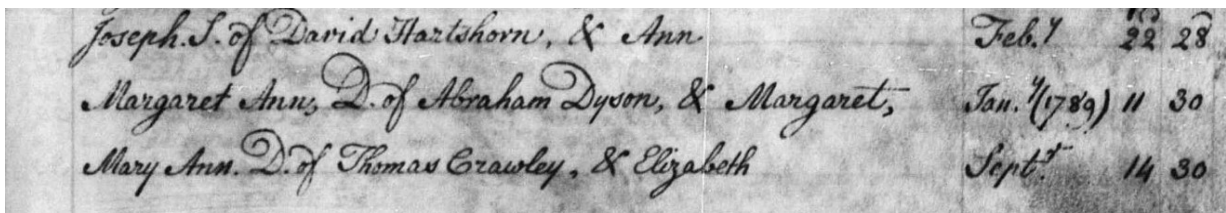 Joseph. S. of David Hartshorn, & Ann Feb.y 22 28
Margaret Ann, D. of Abraham Dyson, & Margaret, Jan.y (1789) 11 30
Mary Ann. D. of Thomas Crawley, & Elizabeth Sept.r 14 30